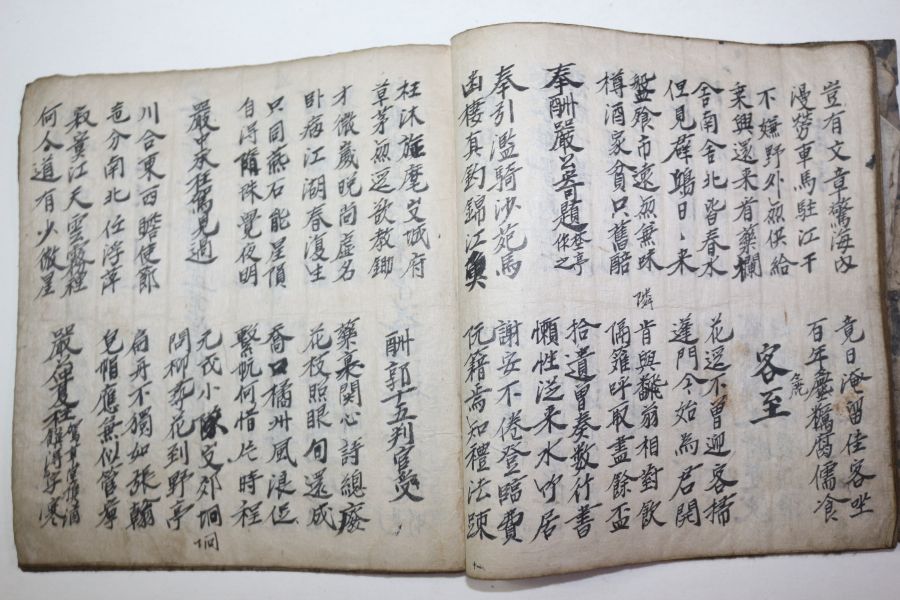 豈有文章驚海內
漫勞車馬駐江干
竟日淹留佳客坐
百年麤糲腐儒飡
麁
不嫌野外無供給
乘興還来看藥欄
客至
舍南舍北皆春水
但見群鷗日ゝ来
花逕不曾迎客掃
蓬門今始為君開
盤飱市遠無兼味
樽酒家貧只舊醅
隣
肯與翁相對飲
隔籬呼取盡餘盃
奉酬嚴公寄題野亭之作
拾遺曾奏數行書
懶性從来水竹居
奉引濫騎沙苑馬
幽棲真釣錦江魚
謝安不倦登臨費
阮籍焉知禮法踈
枉沐旌麾出城府
草茅無逕欲教鋤
酬郭十五判官受
才微歲晚尚虛名
臥病江湖春復生
藥裹関心詩總廢
花枝照眼句還成
只同燕石能星頂
自得隋珠覺夜明
喬口橘州風浪促
繫帆何惜片時程
嚴中丞枉駕見過
元戎小隊出郊坰
坰
問柳尋花到野亭
川合東西瞻使節
地分南北任浮萍
扁舟不獨如張翰
皂帽應無似管寧
寂寞江天雲霧裡
何人道有少微星
嚴公仲夏枉駕草堂得寒